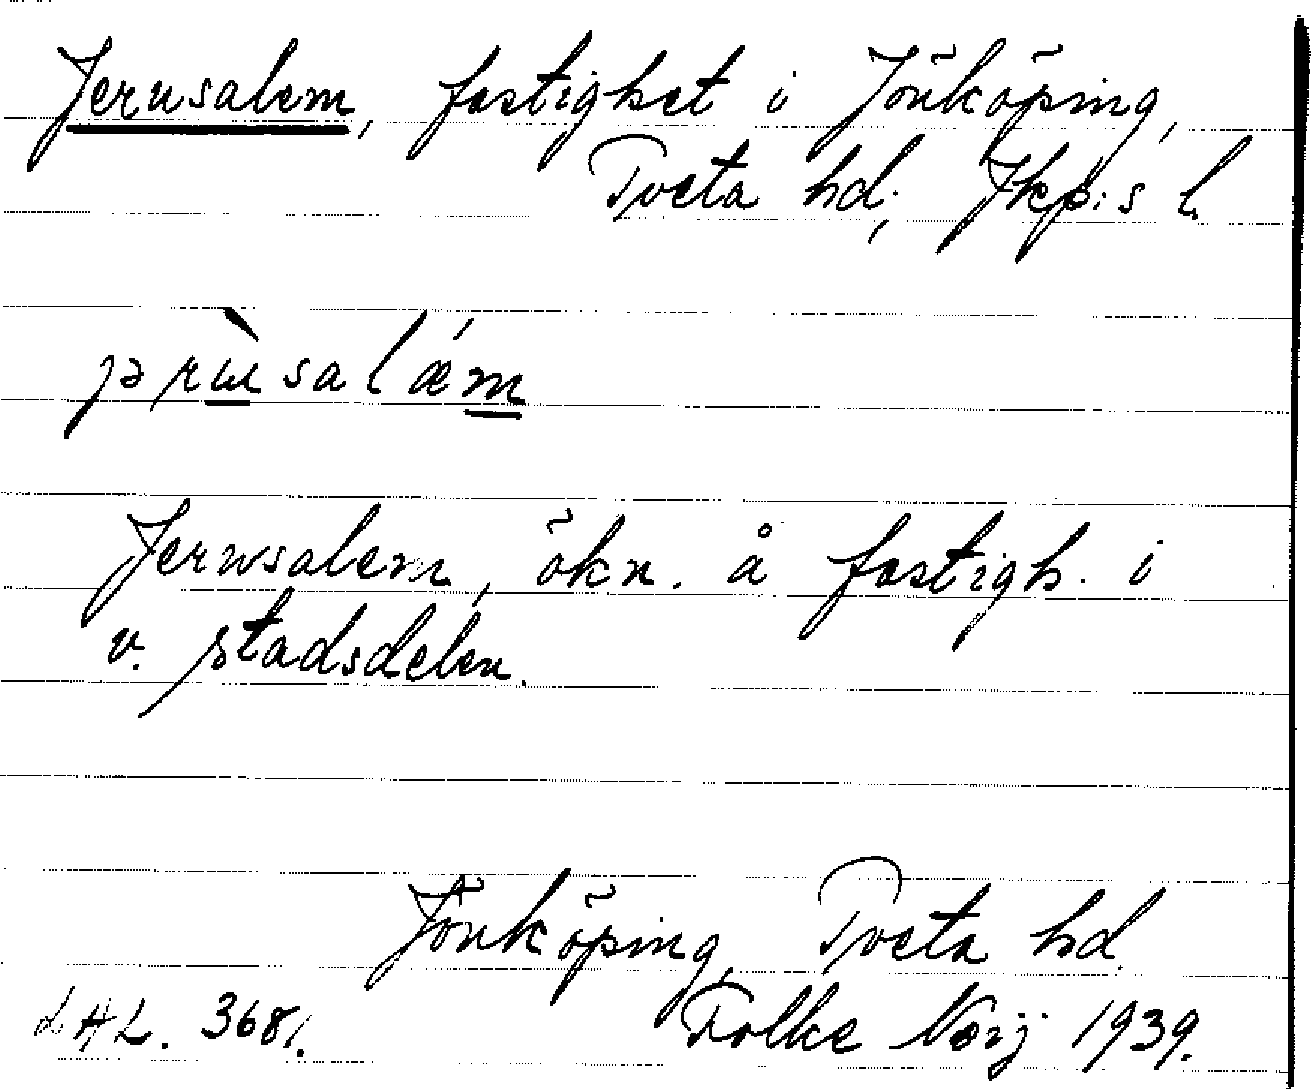 Jerusalem, fastighet i Jönköping,
Tveta hd, Jkp:s l.
jərɯ̀salǽm
Jerusalem, ökn. å fastigh. i
v. stadsdelen.
Jönköping, Tveta hd.
LAL. 3681. Folke 1939.